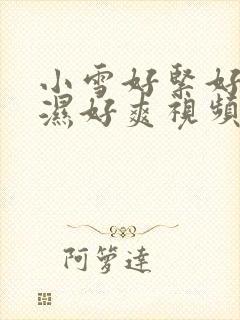 小雪好緊好
濕好爽視頻
阿箩達